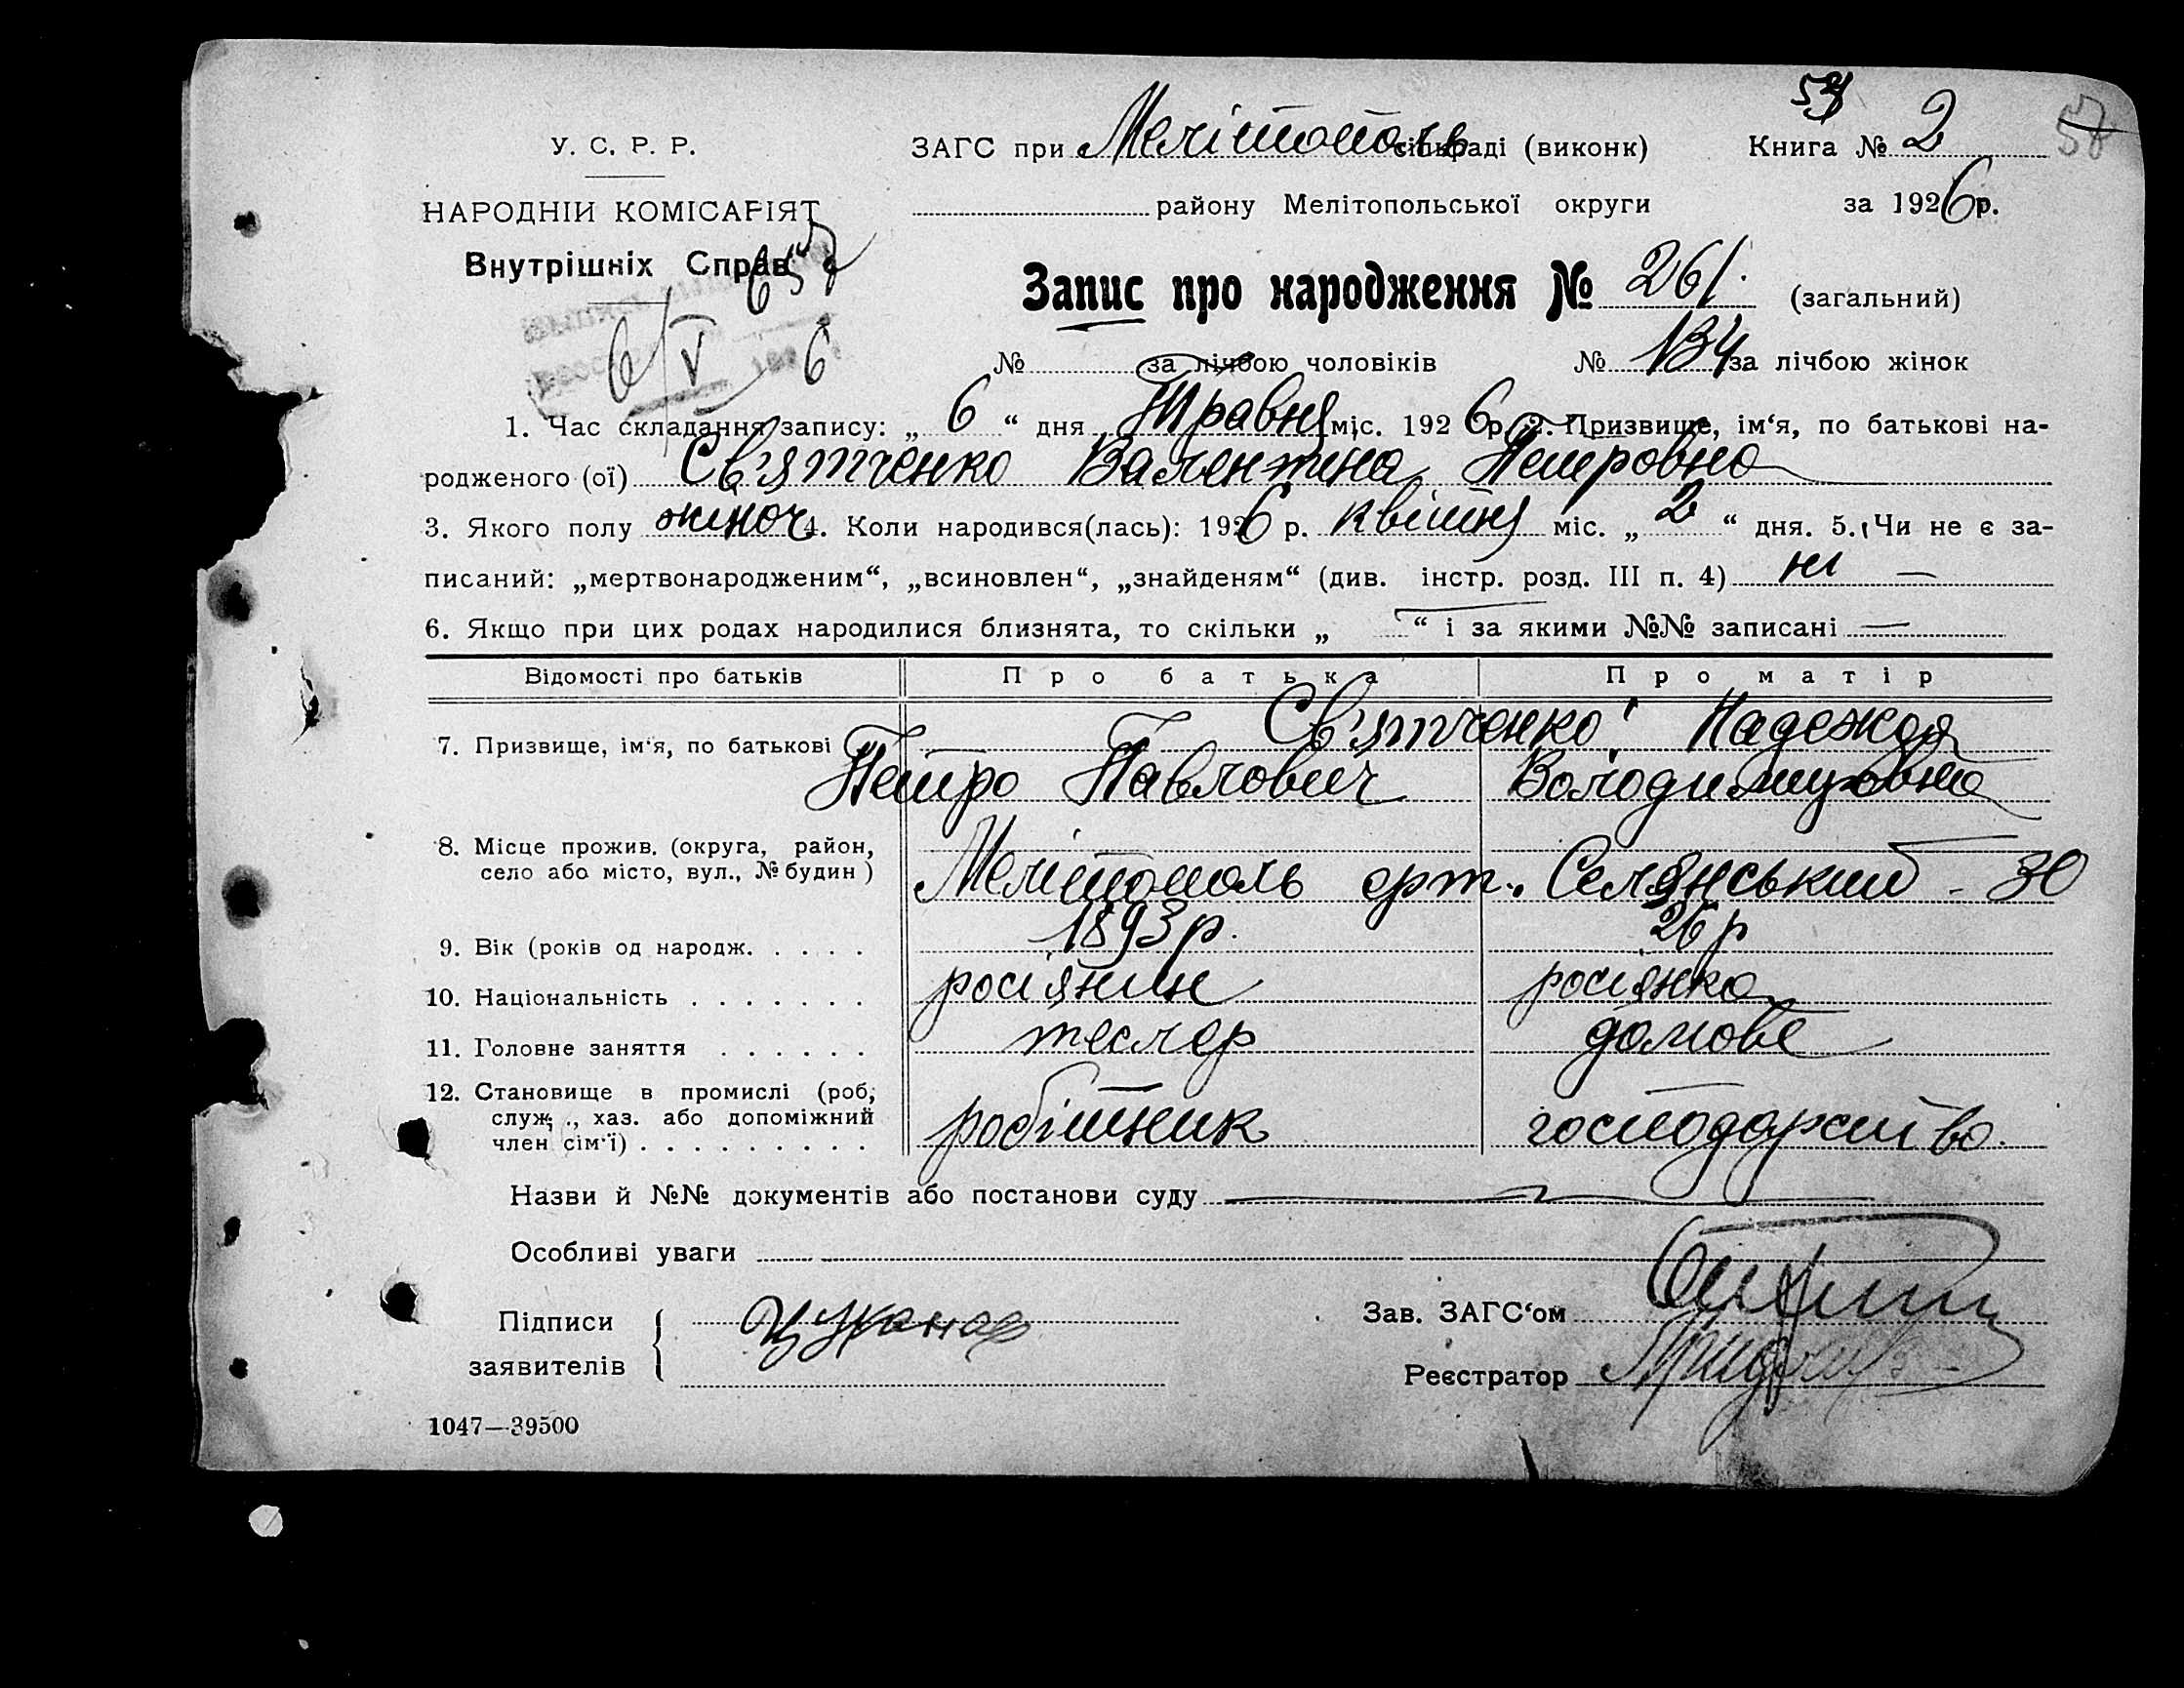 57 58
У. С. Р. Р. ЗАГС при Мелітополь сільраді (виконк) Книга № 2
НАРОДНІЙ КОМІСАРІЯТ району Мелітопольської округи за 1926 р.
Внутрішніх Справ
Запис про народження № 261. (загальний)
6/V 6 № за лічбою чоловіків № 134 за лічбою жінок
1. Час складання запису: „ 6 “ дня Травня міс. 1926 р. 2. Призвище, ім‘я, по батькові на-
родженого (ої) Св'ятченко Валентина Петровна
3. Якого полу жіноч 4. Коли народився(лась): 1926 р. Квітня міс. „ 2 “ дня. 5. Чи не є за-
писаний: „мертвонародженим“, „всиновлен“, „знайденям“ (див. інстр. розд. III п. 4) ні —
6. Якщо при цих родах народилися близнята, то скільки „ — “ і за якими №№ записані —
Відомості про батьків Про батька Про матір
7. Призвище, ім‘я, по батькові Св'ятченко Надежда
Петро Павлович Володимировна
8. Місце прожив. (округа, район,
село або місто, вул., № будин ) Мелітополь арт. Селянський - 30
9. Вік (років од народж. . . . . 1893 р. 26 р
10. Національність . . . . . . . росіянин росіянка
11. Головне заняття . . . . . . тесляр домове
12. Становище в промислі (роб,
служ., хаз. або допоміжний
член сім‘ї) . . . . . . . . . робітник господарство.
Назви й №№ документів або постанови суду —
Особливі уваги
Підписи
заявителів
Зав. ЗАГС‘ом
Реєстратор
1047—39500